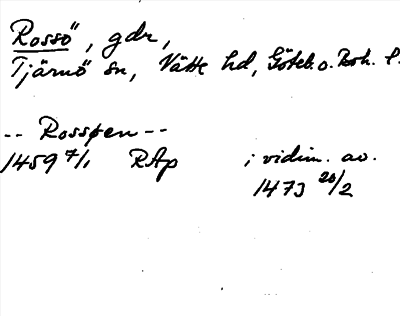 Rossö, gdr,
Tjärnö sn, Vätte hd, Göteb. o. Boh. l.
-- Rossøen --
1459 7/1 RAp i vidim. av.
1473 20/2